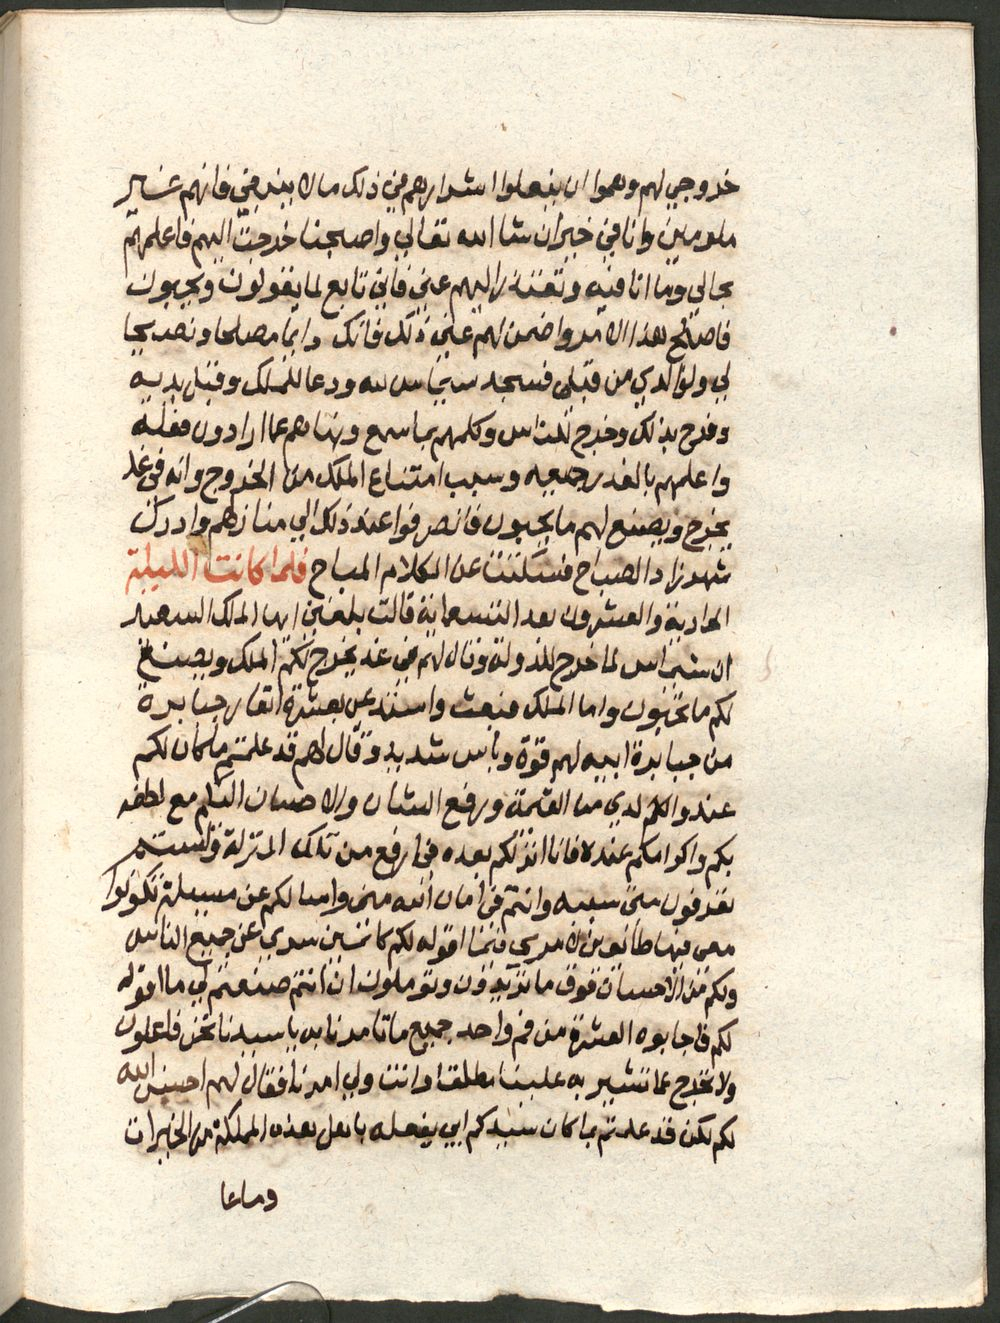 خروجي لهم وهموا ان يفعلوا اشد ابرهم في ذلك مالا ينبغي فانهم غير
ملومين وانا في خير ان شا الله تعالي واصبحنا خرجت اليهم فاعلمهم
بحالي وما انا فيه وتعتذر اليهم عني فاني تابع لما يقولون ويحبون
فاصلح هذا الامر واضمن لهم عني ذلك فانك دايما مصلحا ونصيحا
لي ولوالدي من قبلي فسجد شماس لله ودعا للملك وقبل يديه
وفرح بذلك وخرج للناس وكلمهم بما سمع ونهاهم عما ارادون فعله
واعلمهم بالعذر جميعه وسبب امتناع الملك من الخروج وانه في غد
يخرج ويصنع لهم ما يحبون فانصرفوا عند ذلك الي منازلهم وادرك
شهرزاد الصباح فسكتت عن الكلام المباح فلما كانت الليلة
الحادية والعشرون بعد التسعماية قالت بلغني ايها الملك السعيد
ان شماس لما خرج للدولة وقال لهم في غد يخرج لكم الملك ويصنع
لكم ما تحبون واما الملك فبعث واستدعي بعشرة انفار جبابرة
من جبابرة ابيه لهم قوة وباس شديد وقال لهم قد علمتم ما كان لكم
عند والكم لدي من القيمة ورفع الشان والاحسان اليكم مع لطفه
بكم واكرامكم عنده فانا انزلكم بعده في ارفع من تلك المنزلة ولستم
تعرفون مني سببه وانتم في امان الله مني واسالكم عن مسيلة تكونوا
معي فيها طايعون لامري فيما اقوله لكم كاتمين سري عن جميع الناس
ولكم من الاحسان فوق ما تريدون وتوملون ان انتم صنعتم لي ما اقوله
لكم فاجابوه العشرة من فم واحد جميع ما تامرنا به يا سيدنا نحن فاعلون
ولا نخرج عما تشير به علينا مطلقا وانت ولي امرنا فقال لهم احسن الله
لكم لكن قد علمتم بما كان سيدكم ابي يفعله باهل هذه المملكة من الخيرات
وما عا